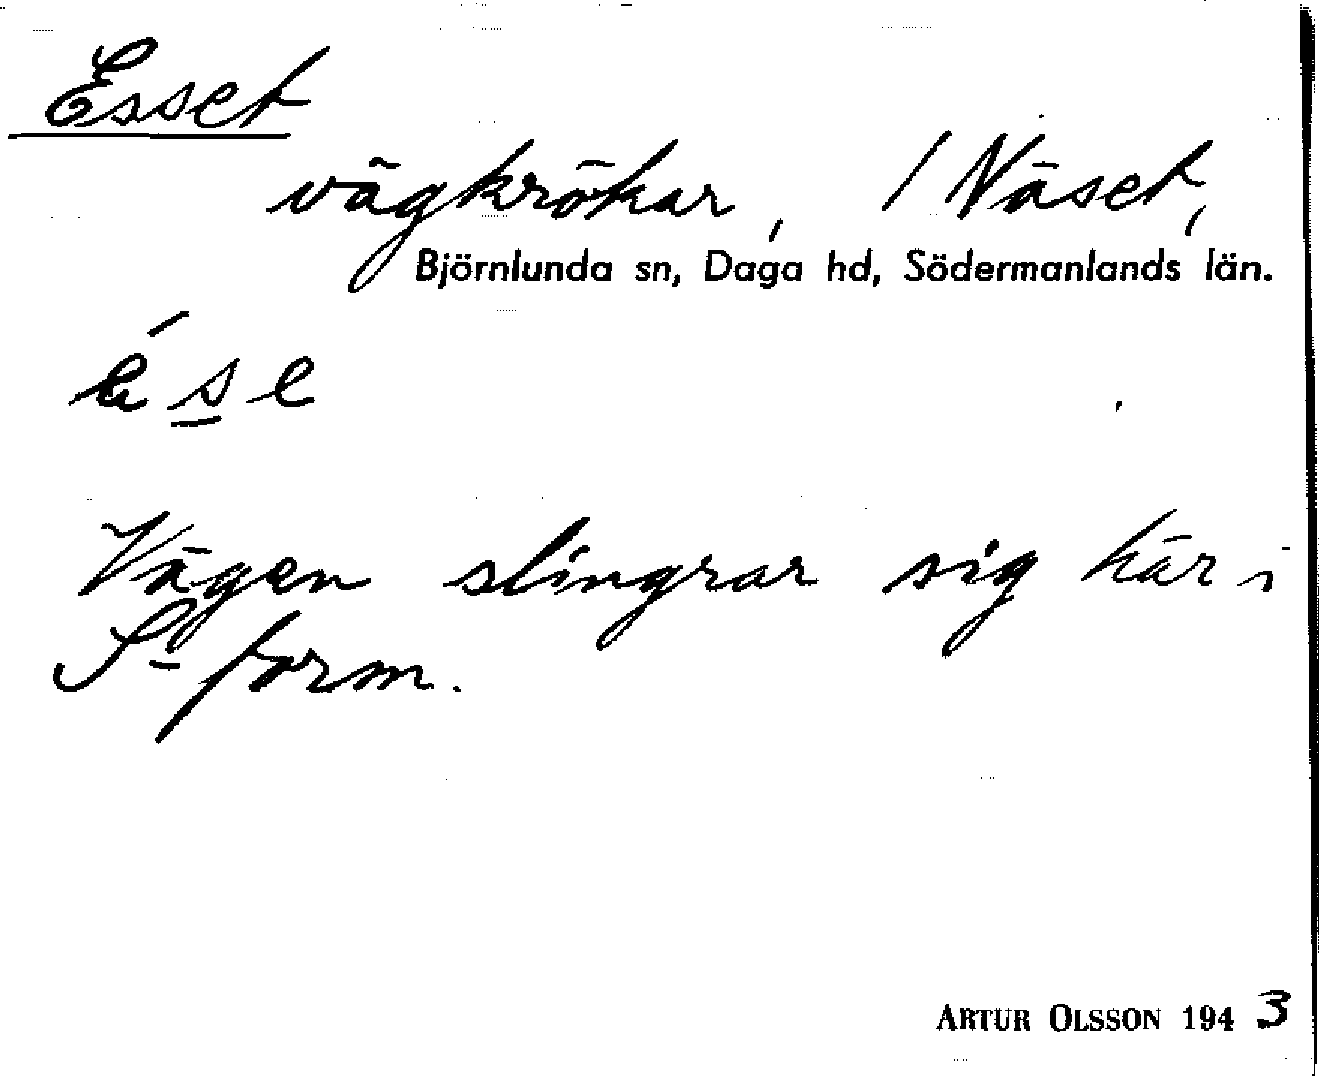 Esset
vägkrökar, / Näset,
Björnlunda sn, Daga hd, Södermanlands län.
Vägen slingrar sig här i
S-form.
ARTUR OLSSON 1943